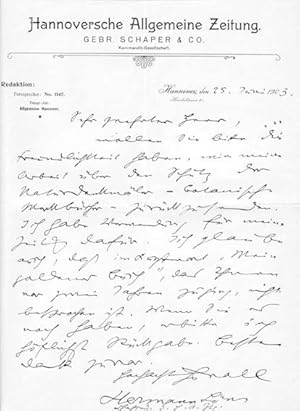 Hannoversche Allgemeine Zeitung.
GEBR. SCHAPER & CO.
Kommandit-Gesellschaft.
Redaktion:
Fernsprecher: No. 1147.
Telegr.-Adr.:
Allgemeine Hannover.
Hannover, den 25. Juni 1903.
Sehr geehrter Herr,
wollen Sie bitte die
Freundlichkeit haben, mir meine
Arbeit über den Schutz der
Naturdenkmäler - botanische
Merkbücher - zurück zu senden.
Ich habe Verwendung für meine
Zeitung dafür. Ich glaube
auch, daß im "Mein
goldenes Buch", das Ihnen
vor zwei Jahren zuging, nicht
besprochen ist. Wenn Sie es
noch haben, erbitte ich
höflichst Rückgabe. Besten
Dank zuvor.
Hermann Löns